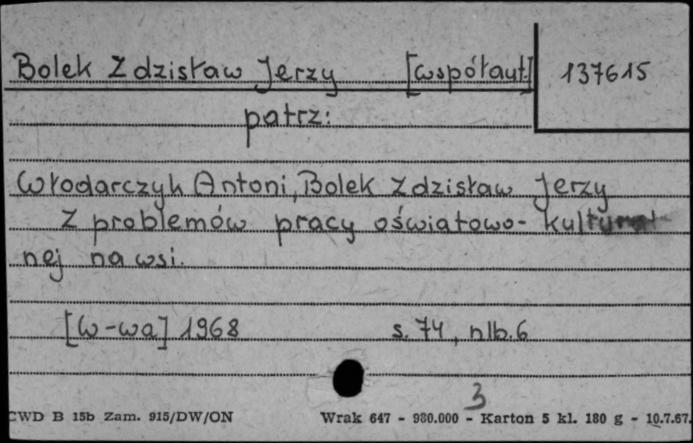 Bolek Zdzisław Jerzy [współaut.] 137615
patrz:
Włodarczyk Antoni, Bolek Zdzisław Jerzy
Z problemów pracy oświatowo-kultural
nej na wsi.
[W-wa] 1968 s. 74, nlb. 6
3
CWD B 15b Zam. 915/DW/ON Wrak 647 - 980.000 - Karton 5 kl. 180 g - 10.7.67.